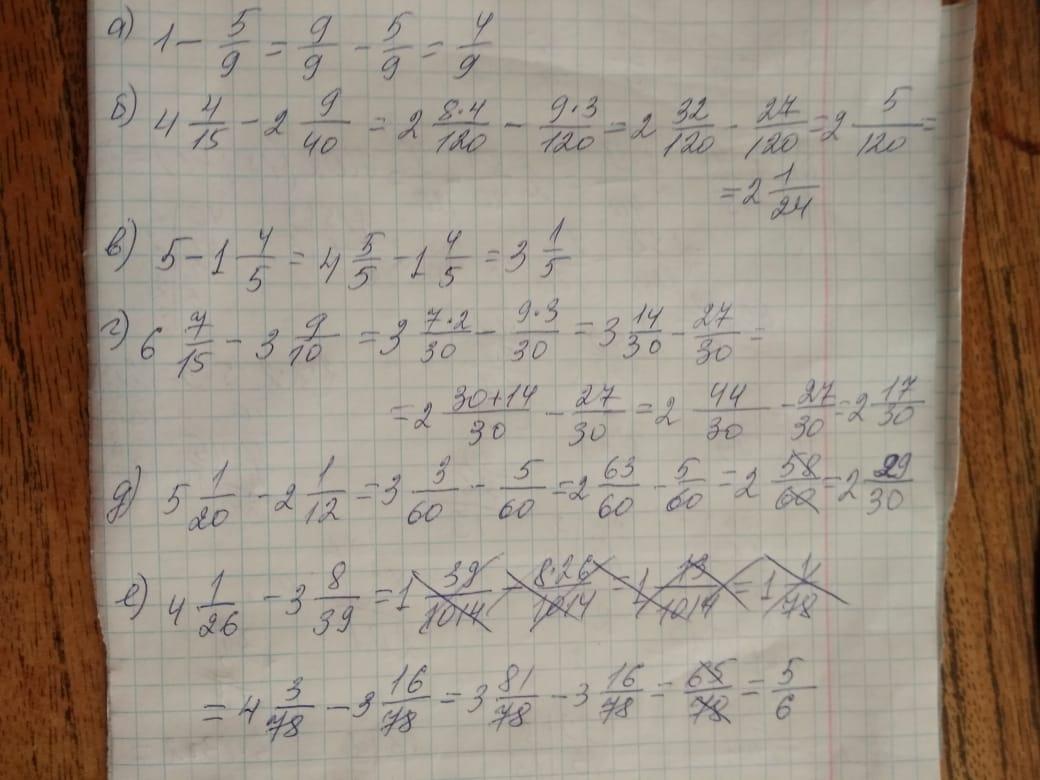 а) 1 - 5/9 = 9/9 - 5/9 = 4/9
б) 4 4/15 - 2 9/40 = 2 8·4/120 - 9·3/120 = 2 32/120 - 27/120 = 2 5/120 =
= 2 1/24
в) 5 - 1 4/5 = 4 5/5 - 1 4/5 = 3 1/5
г) 6 7/15 - 3 9/10 = 3 7·2/30 - 9·3/30 = 3 14/30 - 27/30 =
= 2 30+14/30 - 27/30 = 2 44/30 - 27/30 = 2 17/30
д) 5 1/20 - 2 1/12 = 3 3/60 - 5/60 = 2 63/60 - 5/60 = 2 58/60 = 2 29/30
е) 4 1/26 - 3 8/39 = 1 39/1014 - 8·26/1014 - 1 13/1014 = 1 1/78
= 4 3/78 - 3 16/78 = 3 81/78 - 3 16/78 = 65/78 = 5/6